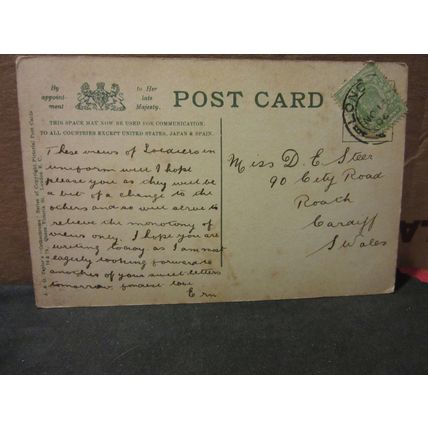 By
appoint-
ment
to Her
late
Majesty.
POST CARD
THIS SPACE MAY NOW BE USED FOR COMMUNICATION.
TO ALL COUNTRIES EXCEPT UNITED STATES, JAPAN & SPAIN.
These views of Soldiers in
uniform will I hope
please you as they will be
a bit of a change to the
others and so will serve to
relieve the monotony of
views only. I hope you are
writing today as I am most
eagerly looking forward to
another of your sweet letters
tomorrow, fondest love
Ern
Miss D. E. Steer
90 City Road
Roath
Cardiff
S Wales